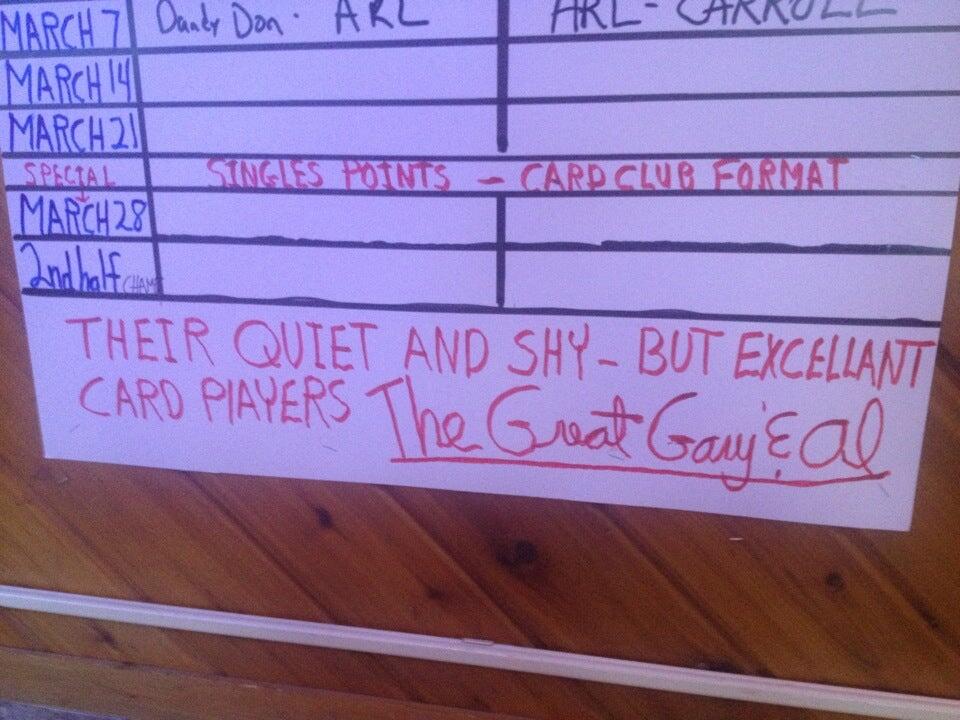 MARCH 7 Dandy Don. ARL ARL - CARROLL
MARCH 14
MARCH 21
SPECIAL SINGLES POINTS - CARD CLUB FORMAT
MARCH 28
2nd half CHAM
THEIR QUIET AND SHY - BUT EXCELLANT
CARD PLAYERS The Great Gary & Al